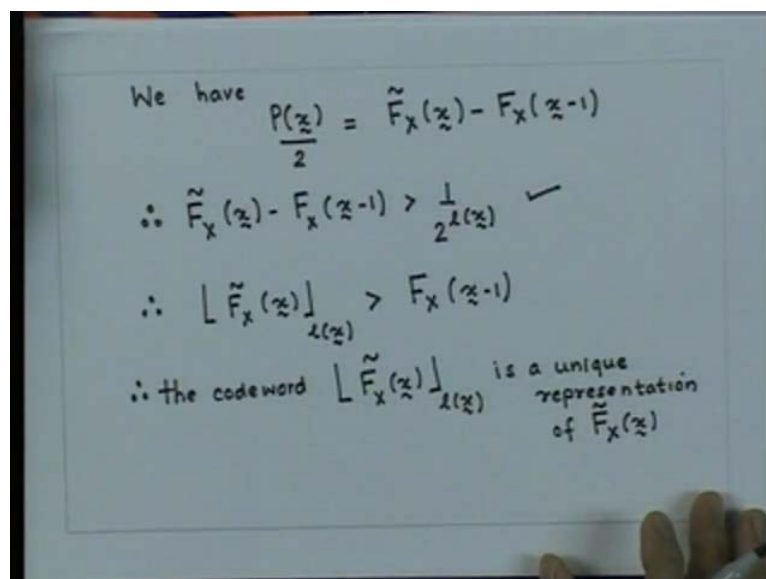 We have
P(x̰)/2 = F̃_X(x̰) - F_X(x̰-1)
∴ F̃_X(x̰) - F_X(x̰-1) > 1/2^{l(x̰)} ✓
∴ ⌊F̃_X(x̰)⌋_{l(x̰)} > F_X(x̰-1)
∴ the codeword ⌊F̃_X(x̰)⌋_{l(x̰)} is a unique
representation
of F̃_X(x̰)